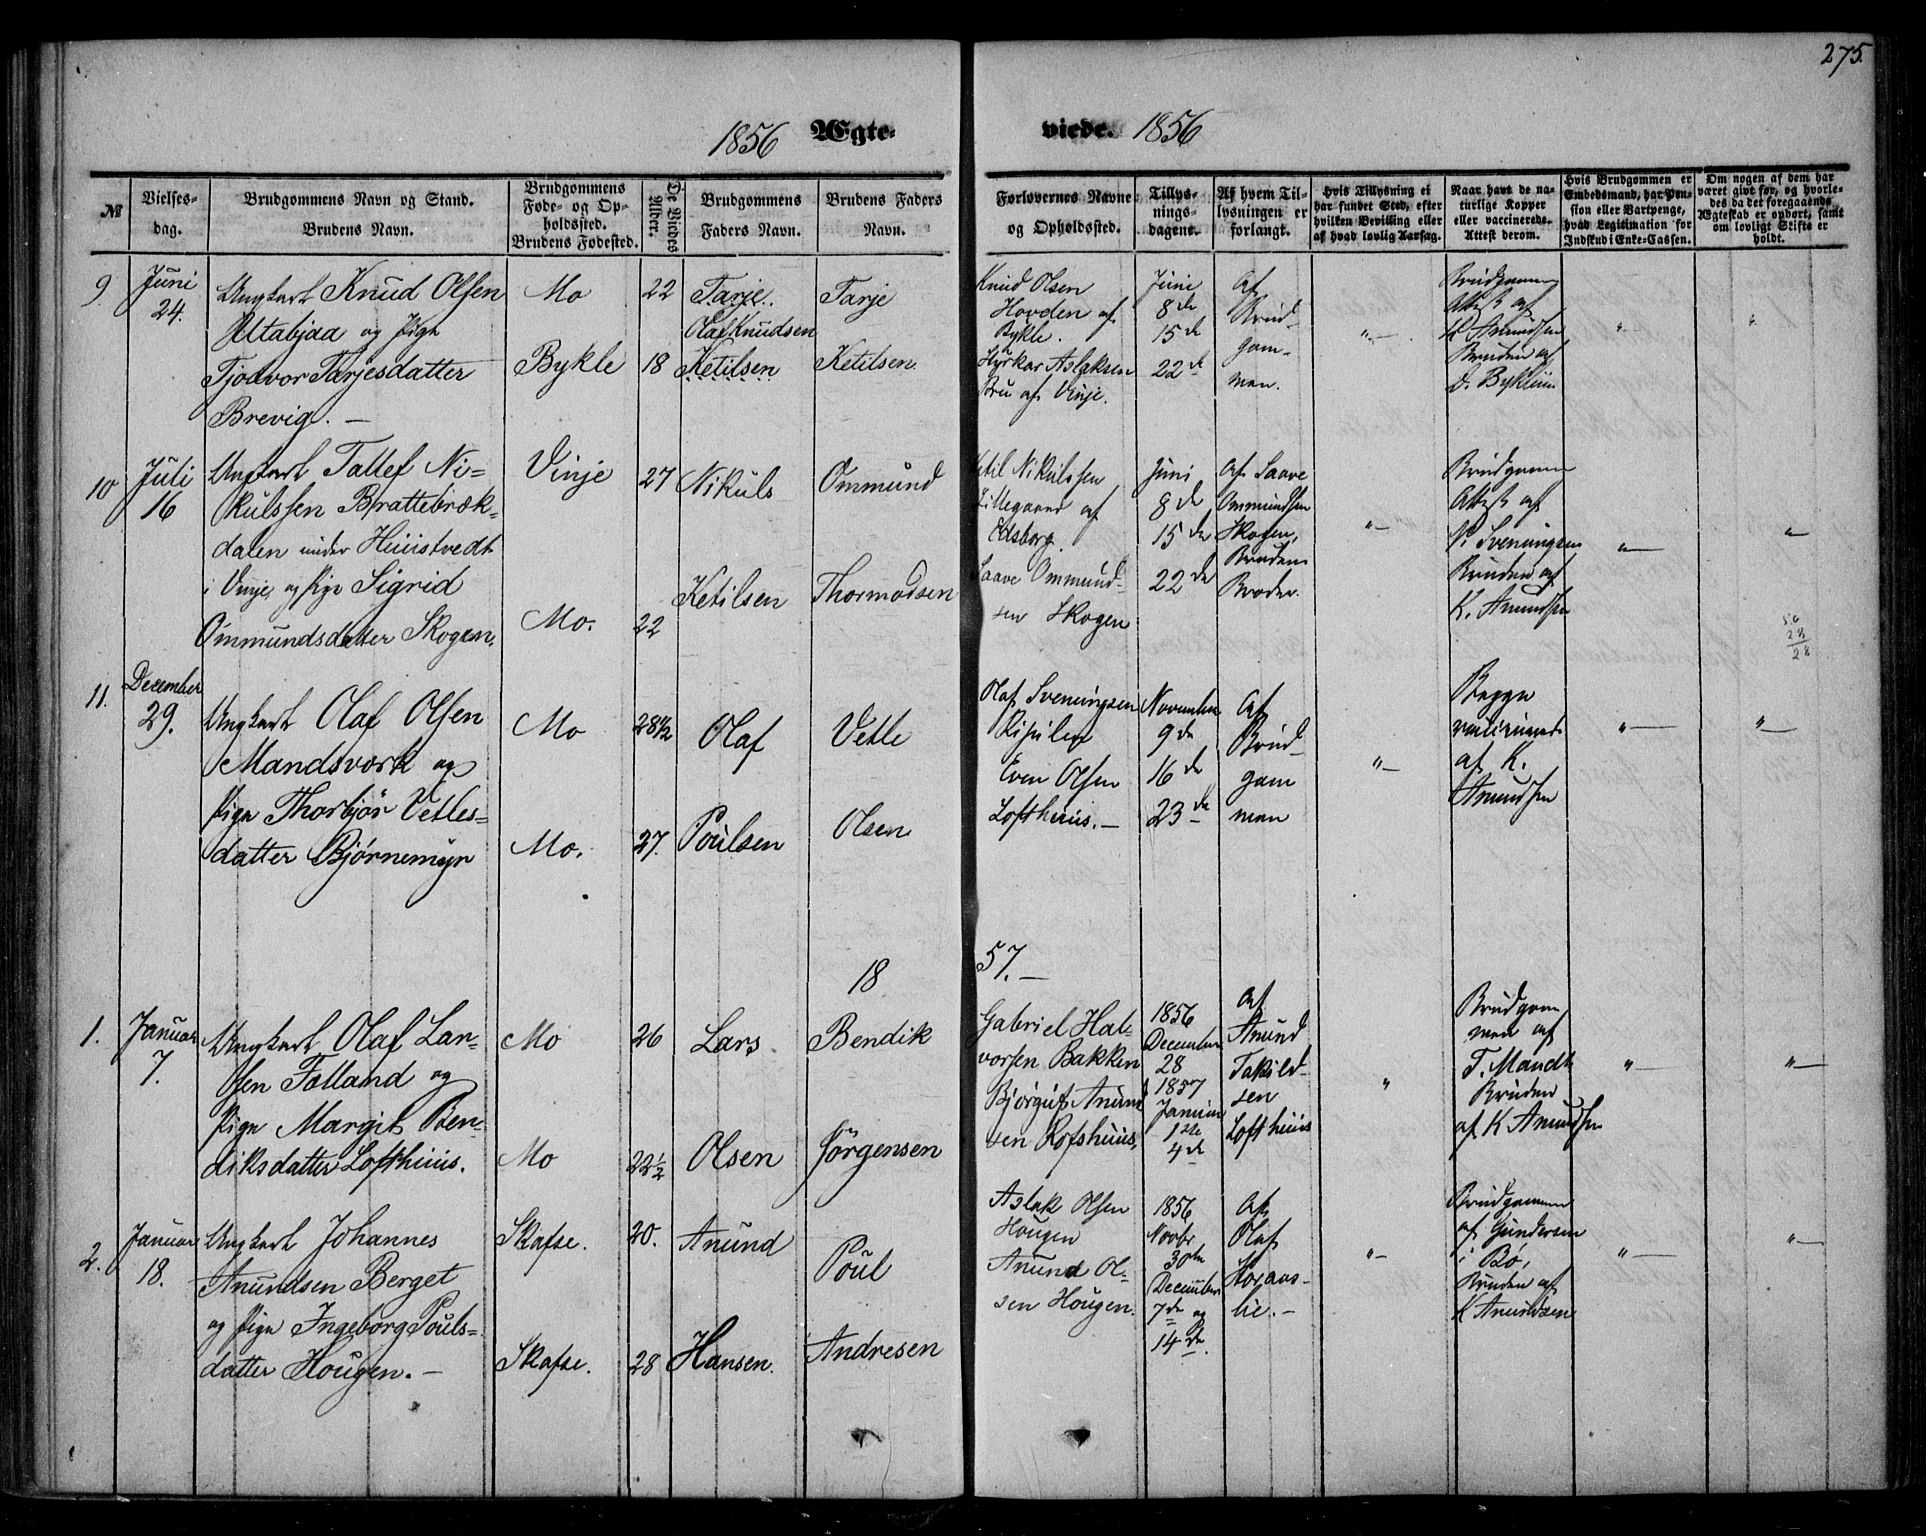 275.
1856 Ægte-
viede. 1856
№
Vielses-
dag.
Brudgommens Navn og Stand.
Brudens Navn.
Brudgommens
Føde- og Op-
holdssted.
Brudens Fødested.
De Viedes
Alder.
Brudgommens
Faders Navn.
Brudens Faders
Navn.
Forlovernes Navne
og Opholdssted.
Tillys-
nings-
dagene.
Af hvem Til-
lysningen er
forlangt.
Hvis Tillysning ei
har fundet Sted, efter
hvilken Bevilling eller
af hvad lovlig Aarsag.
Naar havt de na-
turlige Kopper
eller vaccinerede.
Attest derom.
Hvis Brudgommen er
Embedsmand, har Pen-
sion eller Vartpenge,
hvad Legitimation for
Indskud i Enke-Cassen.
Om nogen af dem har
været givt før, og hvorle-
des da det foregaaende
Ægteskab er ophørt, samt
om lovligt Skifte er
holdt.
9.
Juni
24.
Ungkarl Knud Olsen
Utabjaa og Pige
Tjodvor Tarjesdatter
Brevig. —
Mo
Bykle
22
18
Tarje
Olaf Knudsen
Ketilsen
Tarje
Ketilsen.
Knud Olsen
Hovden af
Bykle.
Hyrkar Aslaksen
Bru af Vinje.
Juni
8de
15de
22de
Af
Brud-
gom-
men.
"—
Brudgommen
Attest af
K Amundsen
Bruden af
D. Byklum
"
"
10
Juli
16
Ungkarl Tallef Ni-
kulssen Brattebræk-
dalen under Huustvedt
i Vinje, og Pige Sigrid
Ommundsdatter Skogen.
Vinje
Mo.
27
22
Nikuls
Ketilsen
Ommund
Thormodsen
Ketil Nikulssen
Lillegaard af
Edsborg.
Saave Ommund-
sen Skogen
Juni
8de
15de
22de
Af Saave
Ommundsen
Skogen,
Brudens
Broder.
"—
Brudgommen
Attest af
N. Sveningsen
Bruden af
K. Amundsen
"—
"—
11.
December
29.
Ungkarl Olaf Olsen
Mandsværk og
Pige Thorbjør Vetles-
datter Bjørnemyr
Mo
Mo.
28½
27.
Olaf
Poulsen
Vetle
Olsen
Olaf Sveningsen
Even Olsen
Lofthuus. —
November
9de
16de
23de
Af
Brud-
gom
men
"—
Begge
vaccinerede
af K.
Amundsen
"—
"—
18
57. —
1.
Januar
7.
Ungkarl Olaf Lar-
sen Folland og
Pige Margit Ben-
diksdatter Lofthuus.
Mo
Mo
26
22½
Lars
Olsen
Bendik
Jörgensen
Gabriel Hal-
vorsen Bakken
Bjørguf Anund
sen Lofthuus.
1856
December
28
1857
Januar
1ste
4de
Af
Anund
Takild-
sen
Lofthuus
"
Brudgom
men af
T. Mandt
Bruden
af K Amundsen
"—
"—
2.
Januar
18.
Ungkarl Johannes
Anundsen Berget
og Pige Ingeborg Pouls-
datter Hougen. —
Skafse.
Skafse.
20.
28
Anund
Hansen.
Poul
Andresen
Aslak Olsen
Hougen
Anund Ol-
sen Hougen.
1856
Novbr
30te
December
7de og
14de.
Af
Olaf
Horgas-
lie. —
"—
Brudgommen
af Gundersen
i Bø,
Bruden af
K Amundsen
"—
"—